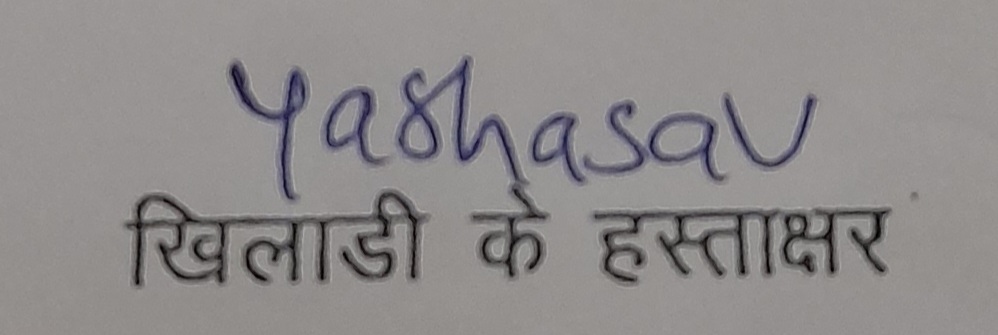 Yashasav
खिलाडी के हस्ताक्षर